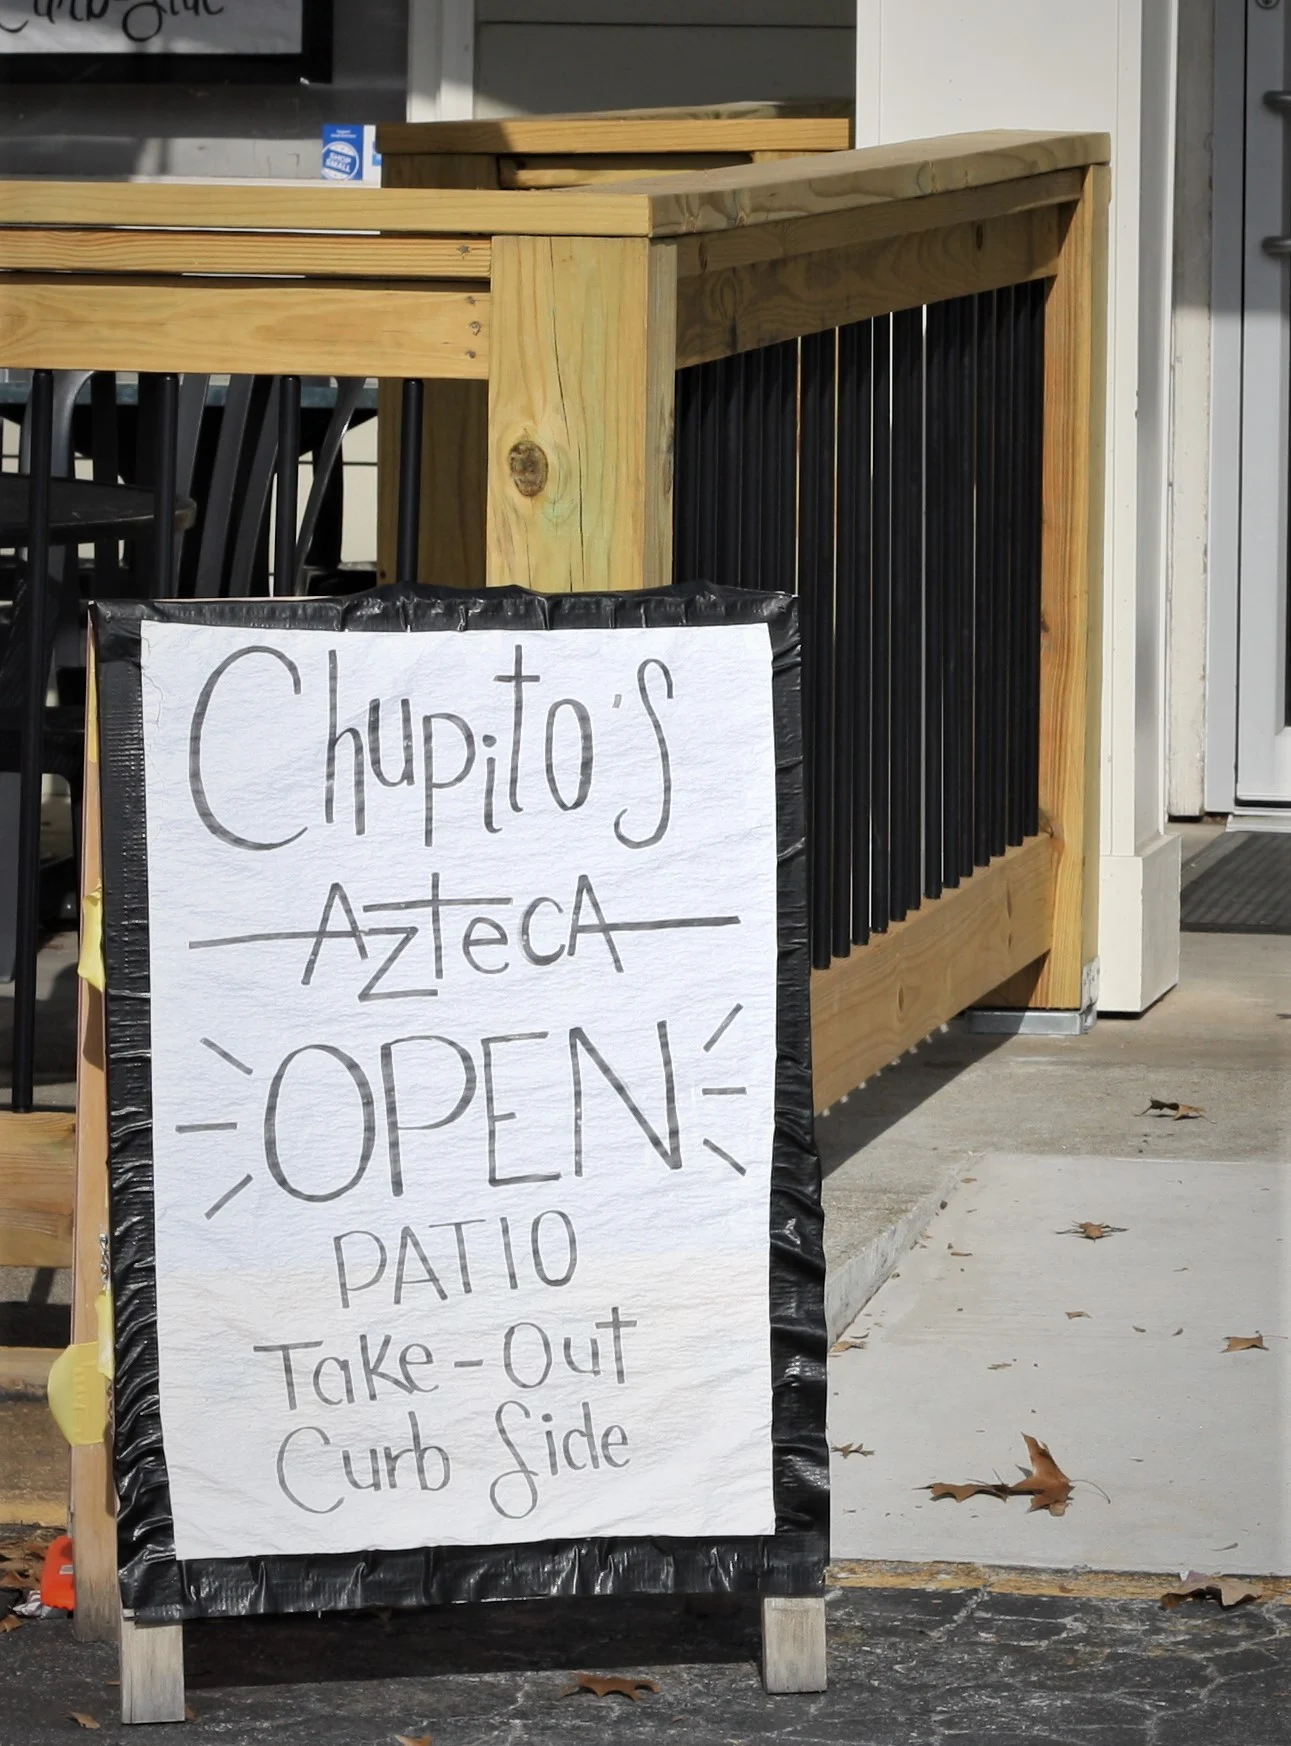 Curb-Side
SHOP
SMALL
Chupito's
AzTecA
OPEN
PATIO
Take-Out
Curb Side